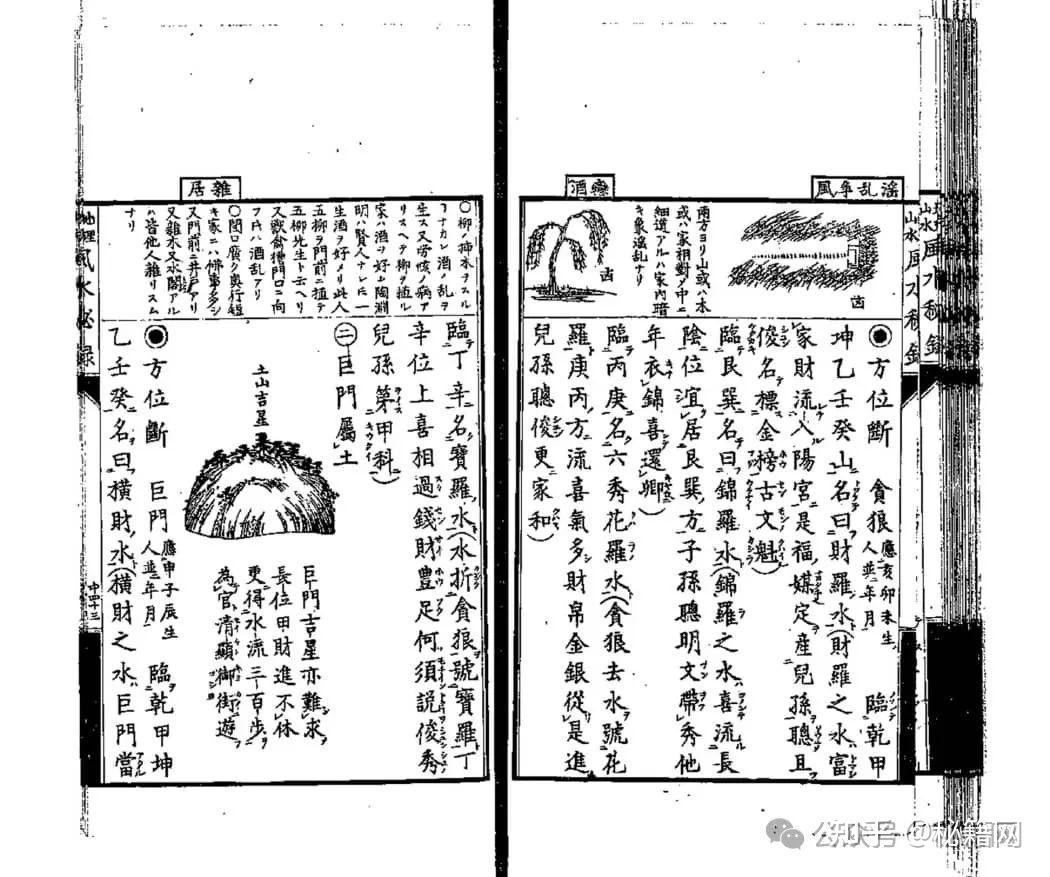 山水風水秘録
滛乱爭風
凶
兩方ヨリ山或ハ木
或ハ家相對メ中ニ
細道アルハ家内暗
キ象滛乱ナリ
癆酒
凶
◉方位斷 貪狼應亥卯未生人並年月 臨乾甲
坤乙壬癸山名曰財羅水(財羅之水富
家財流入陽宮是福媒定産兒孫聰且
俊名標金榜古文魁)
臨艮巽名曰錦羅水(錦羅之水喜流長
陰位宜居艮巽方子孫聰明文帶秀他
年衣錦喜還鄉)
臨丙庚名六秀花羅水(貪狼去水號花
羅庚丙方流喜氣多財帛金銀從是進
兒孫聰俊更家和)
雜居
〇柳ノ挿木ヲスル
フナカレ酒ノ乱ヲ
生ス又癆咳ノ病ア
リスヘテ柳ヲ植ル
家ハ酒ヲ好ム陶淵
明ハ賢人ナレに一
生酒ヲ好メリ此人
五柳ヲ門前ニ植テ
五柳先生ト云ヘリ
又獣禽檀門口ニ向
フ片ハ酒乱アリ
〇間口廣ク奥行短
キ家ニハ佛事多シ
又門前ニ井戸アリ
又雜木又水閣アル
ハ皆他人雜リスム
ナリ
臨丁辛名寶羅水(水折貪狼號寶羅丁
辛位上喜相過錢財豊足何須説俊秀
兒孫第甲科)
㊁巨門屬土
土山吉星
巨門吉星亦難求
長位田財進不休
更得水流三百步
為官清顯御街遊
◉方位斷 巨門應申子辰生人並年月 臨乾甲坤
乙壬癸名曰橫財水(橫財之水巨門當
地理風水秘録
中四十三
公众号 @秘籍网